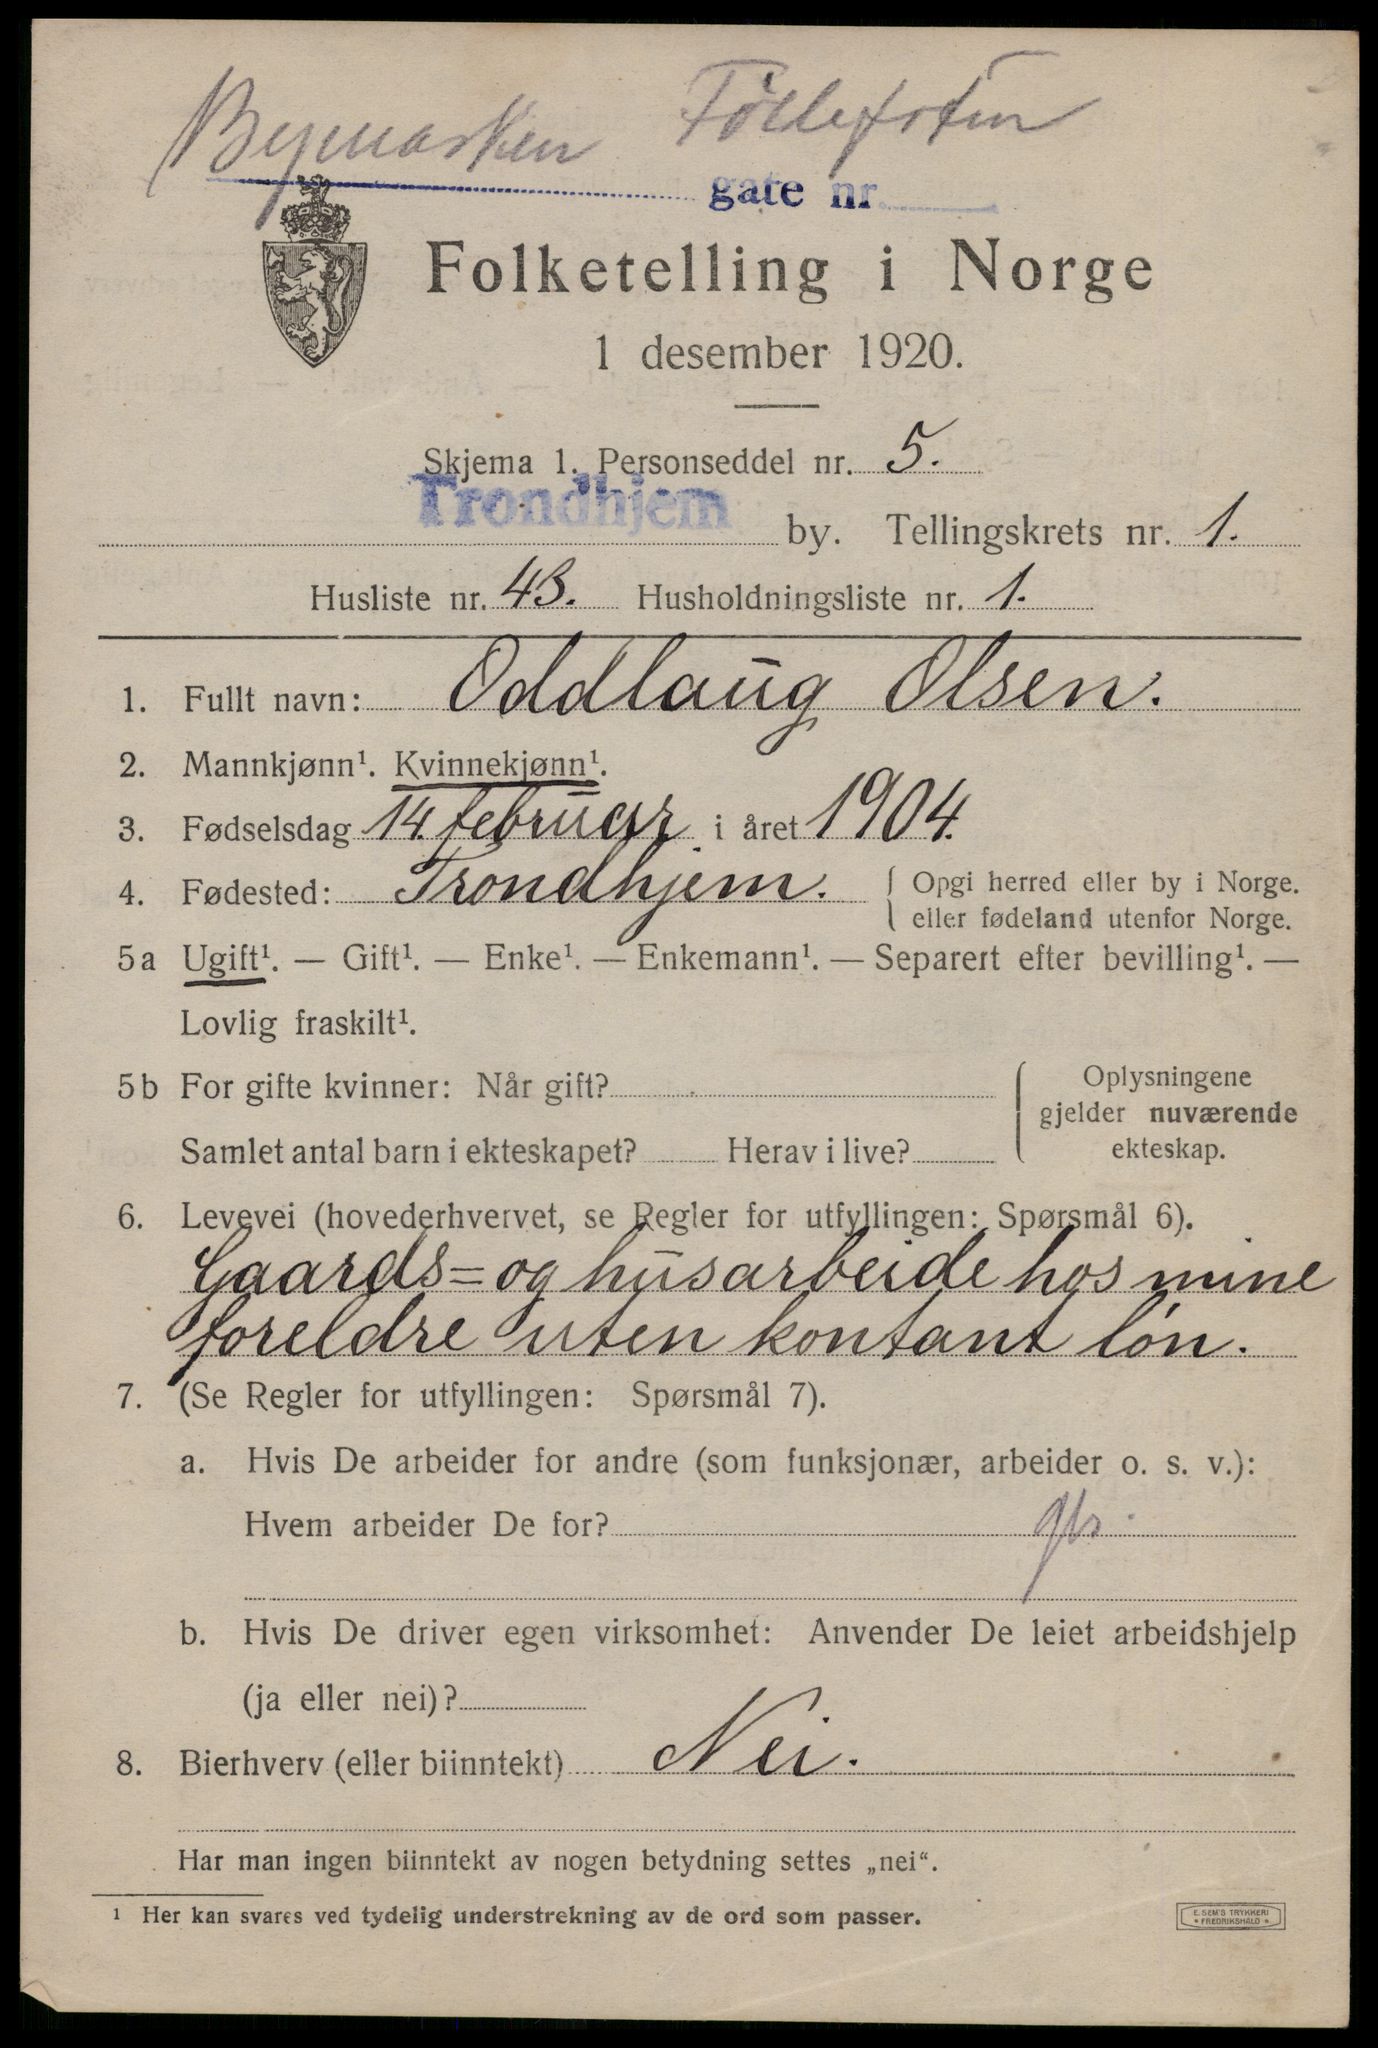 Bymarken Tollefstun
gate nr.
Folketelling i Norge
1 desember 1920.
Skjema 1. Personseddel nr. 5.
Trondhjem by. Tellingskrets nr. 1.
Husliste nr. 43. Husholdningsliste nr. 1.
1. Fullt navn: Oddlaug Olsen.
2. Mannkjønn¹. Kvinnekjønn¹.
3. Fødselsdag 14. februar i året 1904.
4. Fødested: Trondhjem. { Opgi herred eller by i Norge.
eller fødeland utenfor Norge.
5a Ugift¹. — Gift¹. — Enke¹. — Enkemann¹. — Separert efter bevilling¹. —
Lovlig fraskilt¹.
5b For gifte kvinner: Når gift?
Samlet antal barn i ekteskapet? Herav i live?
Oplysningene
gjelder nuværende
ekteskap.
6. Levevei (hovederhvervet, se Regler for utfyllingen: Spørsmål 6).
Gaards= og husarbeide hos mine
foreldre uten kontant lön.
7. (Se Regler for utfyllingen: Spørsmål 7).
a. Hvis De arbeider for andre (som funksjonær, arbeider o. s. v.):
Hvem arbeider De for?
b. Hvis De driver egen virksomhet: Anvender De leiet arbeidshjelp
(ja eller nei)?
8. Bierhverv (eller biinntekt) Nei.
Har man ingen biinntekt av nogen betydning settes „nei“.
¹ Her kan svares ved tydelig understrekning av de ord som passer.
E. SEM'S TRYKKERI
* FREDRIKSHALD *